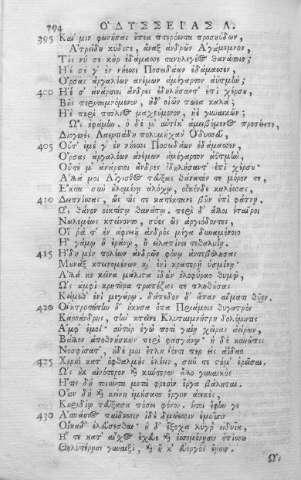 ΟΔΥΣΣΕΙΑΣ Λ.
395 Καί μιν φωνήσας ἔπεα πτερόεντα προσηύδων,
Ἀτρείδη κύδιστε, ἄναξ ἀνδρῶν Ἀγάμεμνον,
Τίς νύ σε κὴρ ἐδάμασσε τανηλεγέος θανάτοιο;
Ἠὲ σέ γ' ἐν νήεσσι Ποσειδάων ἐδάμασσεν,
Ὄρσας ἀργαλέων ἀνέμων ἀμέγαρτον ἀϋτμήν;
400 Ἠέ σ' ἀνάρσιοι ἄνδρες ἐδηλήσαντ' ἐπὶ χέρσου
Βοῦς περιταμνόμενον, ἠδ' οἰῶν πώεα καλὰ;
Ἠὲ περὶ πτόλιος μαχεούμενον, ἠδὲ γυναικῶν;
Ὣς ἐφάμην, ὁ δέ μ' αὐτίκ' ἀμειβόμενος προσέειπεν,
Διογενὲς Λαερτιάδη πολυμήχαν' Ὀδυσσεῦ,
405 Οὔτ' ἐμέ γ' ἐν νήεσσι Ποσειδάων ἐδάμασσεν,
Ὄρσας ἀργαλέων ἀνέμων ἀμέγαρτον ἀϋτμὴν,
Οὔτε μ' ἀνάρσιοι ἄνδρες ἐδηλήσαντ' ἐπὶ χέρσου·
Ἀλλά μοι Αἴγισθος τεύξας θάνατόν τε μόρον τε,
Ἔκτα σὺν οὐλομένῃ ἀλόχῳ, οἶκόνδε καλέσσας,
410 Δειπνίσσας, ὥς τίς τε κατέκτανε βοῦν ἐπὶ φάτνῃ.
Ὣς θάνον οἰκτίστῳ θανάτῳ, περὶ δ' ἄλλοι ἑταῖροι
Νωλεμέως κτείνοντο, σύες ὣς ἀργιόδοντες,
Οἵ ῥά τ' ἐν ἀφνειοῦ ἀνδρὸς μέγα δυναμένοιο
Ἢ γάμῳ ἢ ἐράνῳ, ἢ εἰλαπίνῃ τεθαλυίῃ.
415 Ἤδη μὲν πολέων ἀνδρῶν φόνῳ ἀντεβόλησας
Μουνὰξ κτεινομένων κỳ ἐνὶ κρατερῇ ὑσμίνῃ·
Ἀλλά κε κεῖνα μάλιστα ἰδὼν ἐλοφύραο θυμῷ,
Ὡς ἀμφὶ κρητῆρα τραπέζας τε πληθούσας
Κείμεθ' ἐνὶ μεγάρῳ· δάπεδον δ' ἅπαν αἵματι θῦεν.
420 Οἰκτροτάτην δ' ἤκουσα ὄπα Πριάμοιο θυγατρὸς
Κασσάνδρης, τὴν κτεῖνε Κλυταιμνήστρη δολόμητις
Ἀμφ' ἐμοί· αὐτὰρ ἐγὼ ποτὶ γαίῃ χεῖρας ἀείρων,
Βάλλον ἀποθνήσκων περὶ φασγάνῳ· ἡ δὲ κυνῶπις
Νοσφίσατ', οὐδέ μοι ἔτλη ἰόντι περ εἰς ἀΐδαο
425 Χερσὶ κατ' ὀφθαλμοὺς ἑλέειν, σύν τε στόμ' ἐρεῖσαι.
Ὣς οὐκ αἰνότερον κỳ κύντερον ἄλλο γυναικὸς
Ἥτις δὴ τοιαῦτα μετὰ φρεσὶν ἔργα βάληται.
Οἷον δὴ κỳ κείνη ἐμήσατο ἔργον ἀεικὲς,
Κουριδίῳ τεύξασα πόσει φόνον. ἤτοι ἔφην γε
430 Ἀσπάσιος παίδεσσιν ἰδὲ δμώεσσιν ἐμοῖσιν
Οἴκαδ' ἐλεύσεσθαι· ἡ δ' ἔξοχα λυγρὰ εἰδυῖα,
Ἥ τε κατ' αἶσχος ἔχευε κỳ ἐσσομένῃσιν ὀπίσσω
Θηλυτέρῃσι γυναιξὶ, κỳ ἥ κ' εὐεργὸς ἔῃσιν.
Ὣς